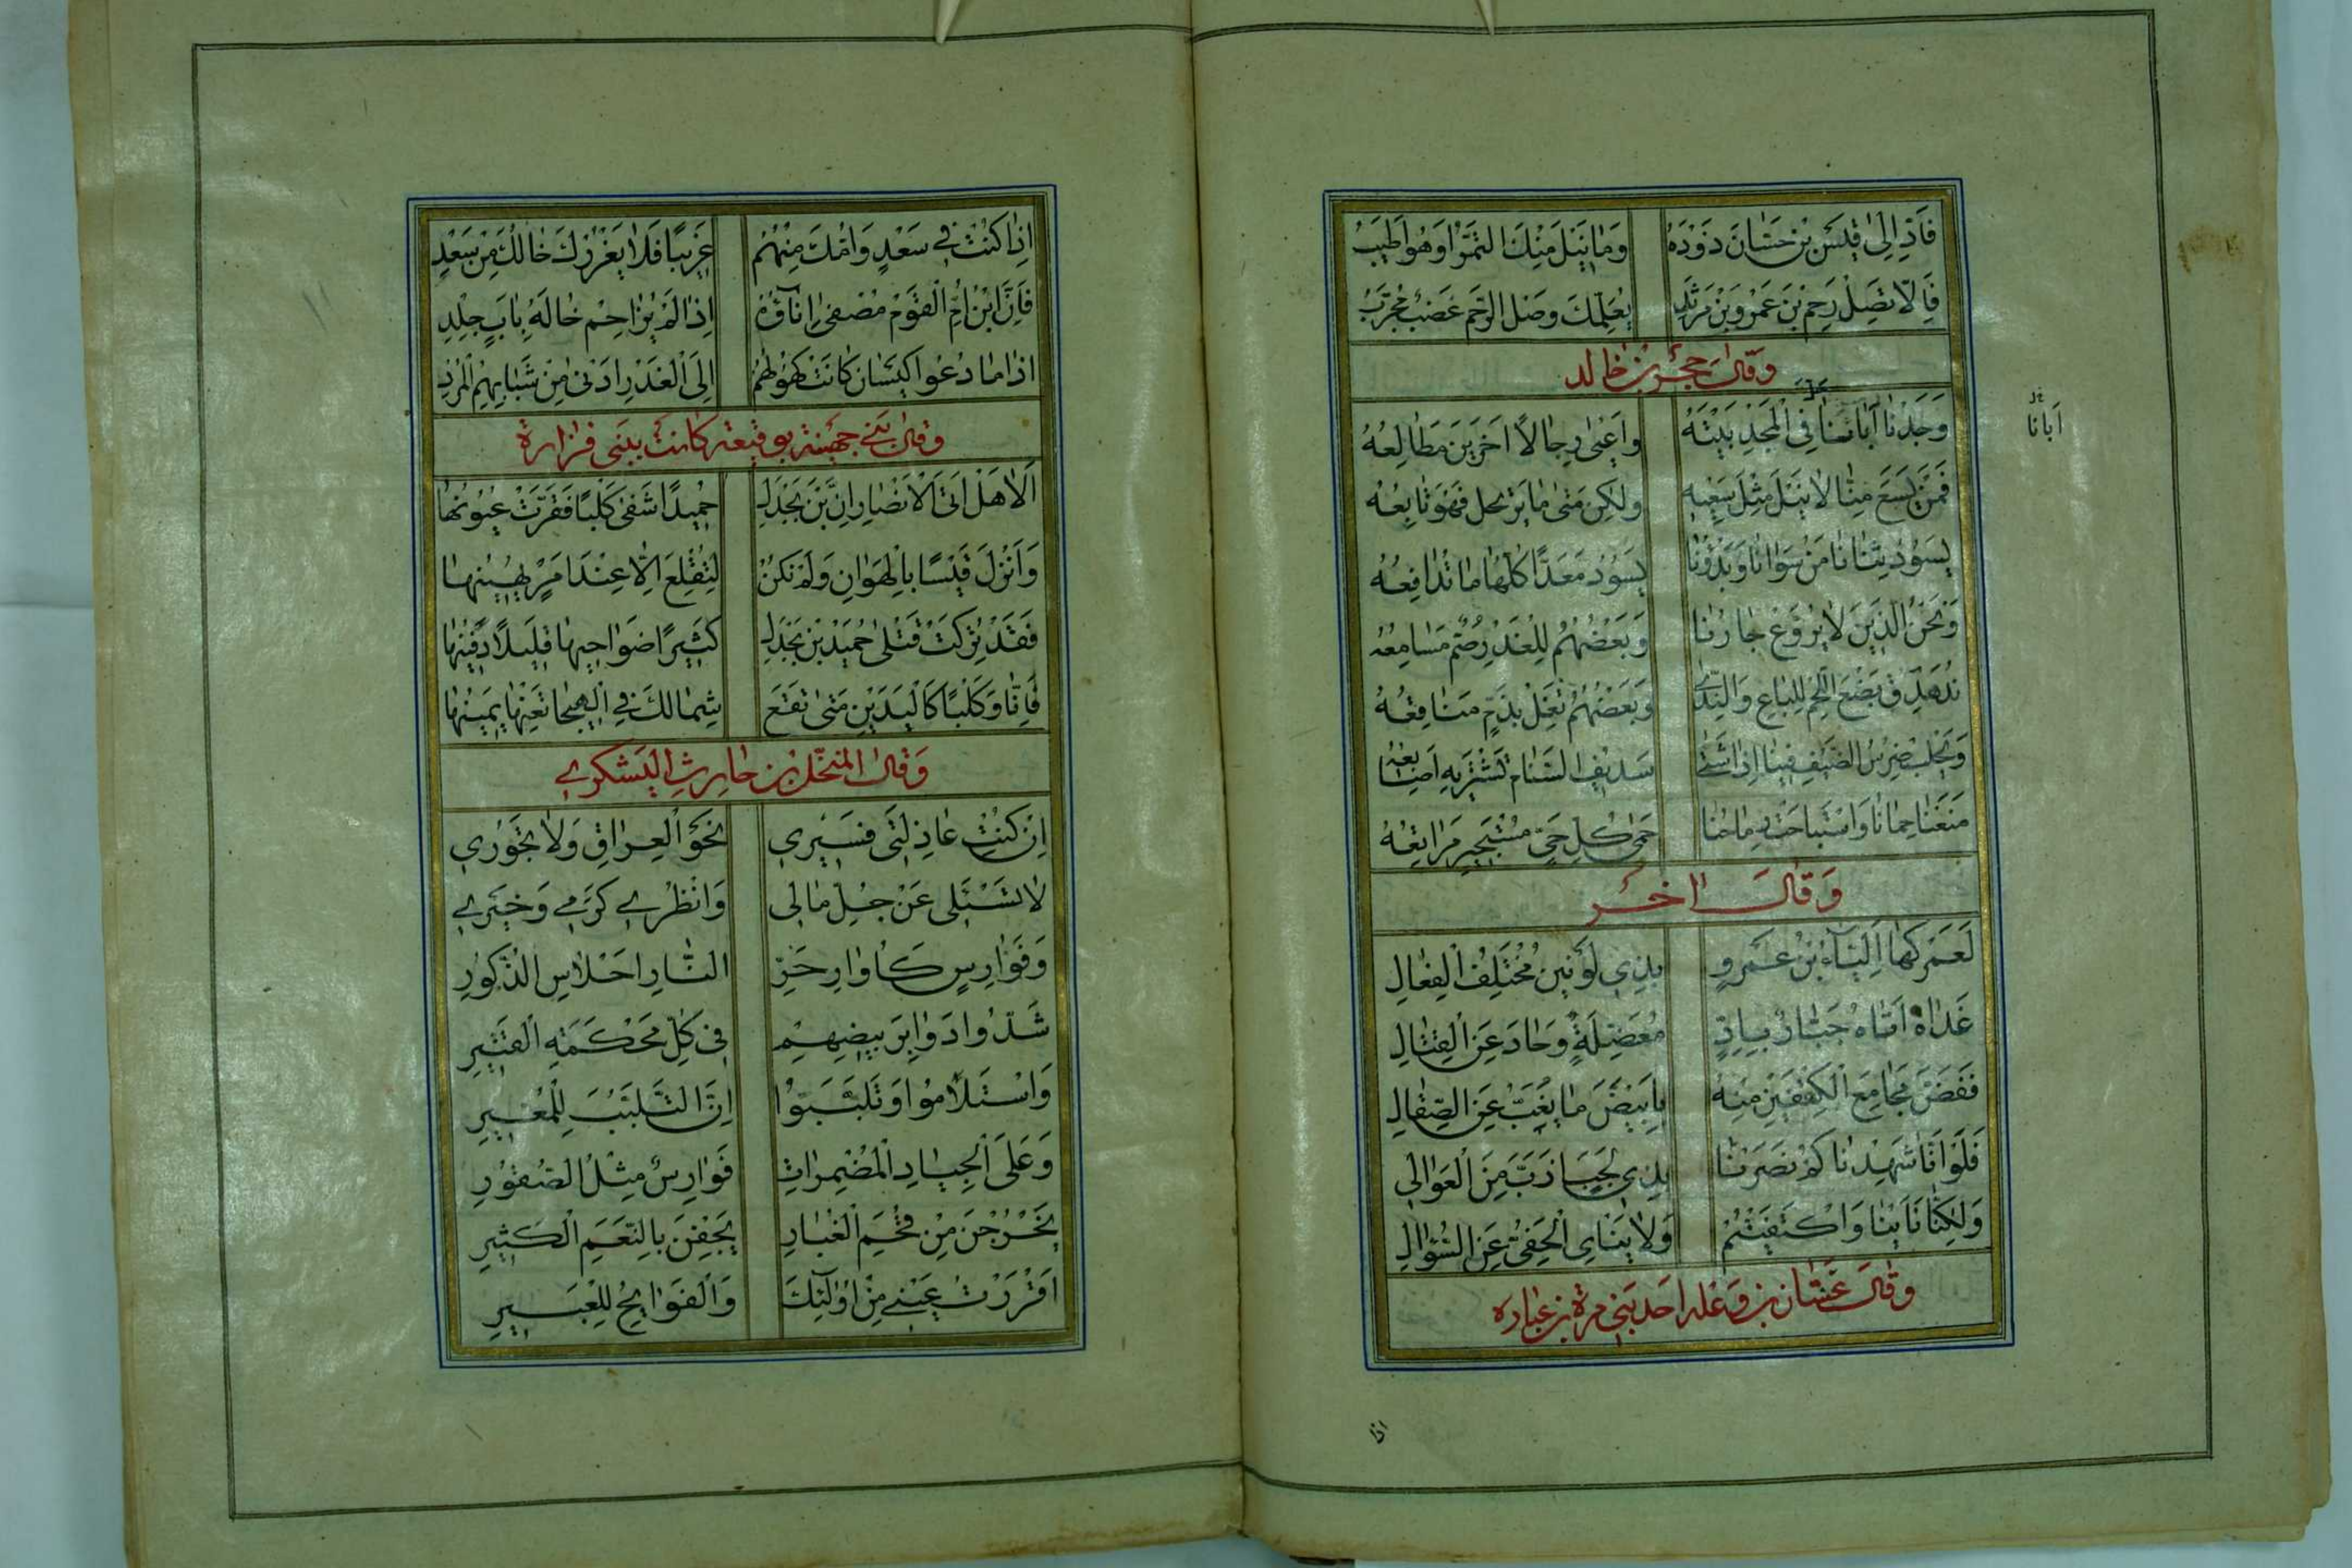 فَاَدِّ اِلىٰ قَيْسِ بْنِ حَسّٰانَ ذَوْدَهُ وَمٰا نِيْلَ مِنْكَ التَّمْرُ اَوْ هُوَ اَطْيَبُ
فَاِلّا تَصِلْ رَحِمَ بْنِ عَمْرِو بْنِ مَرْثَدٍ يُعَلِّمْكَ وَصْلَ الرَّحِمِ عَضْبٌ مُجَرَّبُ
وَقٰالَ حُجْرُ بْنُ خٰالِد
وَجَدْنٰا اَبٰانٰا فِى الْمَجْدِ بَيْتَهُ وَاَعْيٰى رِجٰالاً اٰخَرِيْنَ مَطٰالِعُهُ
اَبٰانٰا
فَمَنْ يَسْعَ مِنّٰا لٰا يَنَلْ مِثْلَ سَعْيِهِ وَلٰكِنْ مَتىٰ مٰا يَرْتَحِل فَهْوَ تٰابِعُهُ
يَسُوْدُ ثِنٰانٰا مَنْ سِوٰانٰا وَبَدْؤُنٰا يَسُوْدُ مَعَدًّا كُلَّهٰا مٰا تُدٰافِعُهُ
وَنَحْنُ الَّذِيْنَ لٰا يُرَوَّعُ جٰارُنٰا وَبَعْضُهُمْ لِلْغَدْرِ صُمٌّ مَسٰامِعُهُ
نُدَهْدِقُ بَضْعَ اللَّحْمِ لِلْبٰاعِ وَالنَّدىٰ وَبَعْضُهُمْ تَغْلِى بِذَمٍّ مَنٰاقِعُهُ
وَيَحْلُبُ ضِرْسُ الضَّيْفِ فِيْنٰا اِذٰا شَتٰى سَدِيْفَ السَّنٰامِ تَشْتَرِيْهِ اَصٰابِعُهُ
مَنَعْنٰا حِمٰانٰا وَاسْتَبٰاحَتْ رِمٰاحُنٰا حِمىٰ كُلِّ حَىٍّ مُسْتَجِيْرٍ مَرٰاتِعُهُ
وَقٰالَ اٰخَرُ
لَعَمْرُكَ مٰا اَلْيٰاءُ بْنُ عَمْرٍو بِذِى لَوْنَيْنِ مُخْتَلِفُ الْفِعٰالِ
غَدٰاةَ اَتٰاهُ جَبّٰارٌ بِاِدٍّ مُعَضِّلَةٍ وَحٰادَ عَنِ الْقِتٰالِ
فَفَضَّ مَجٰامِعَ الْكِتْفَيْنِ مِنْهُ بِاَبْيَضَ مٰا يُغَبُّ عَنِ الصِّقٰالِ
فَلَوْ اَنّٰا شَهِدْنٰاكُمْ نَصَرْنٰا بِذِى لَجَبٍ اَزَبَّ مِنَ الْعَوٰالِى
وَلٰكِنّٰا نَاَيْنٰا وَاكْتَفَيْتُمْ وَلٰا يَنْاٰى الْحَفِىُّ عَنِ السُّؤٰالِ
وَقٰالَ غَسّٰان بن وَعْله احَد بَنِى مرة بن عُبٰاده
اذا
اِذٰا كُنْتَ فِى سَعْدٍ وَاُمُّكَ مِنْهُمُ غَرِيْبًا فَلٰا يَغْرُرْكَ خٰالُكَ مِنْ سَعْدِ
فَاِنَّ ابْنَ اُخْتِ الْقَوْمِ مُصْفىً اِنٰاؤُهُ اِذٰا لَمْ يُزٰاحِمْ خٰالَهُ بِاَبٍ جَلْدِ
اِذٰا مٰا دُعُوا كَيْسٰانَ كٰانَتْ كُهُوْلُهُمْ اِلَى الْغَدْرِ اَدْنىٰ مِنْ شَبٰابِهِمِ الْمُرْدِ
وَقٰالَ بَنِى جهينة بوقيعة كانت ببنى فزارة
اَلٰا هَلْ اَتَى الْاَنْصٰارَ اَنَّ بْنَ بَحْدَلٍ حُمَيْدًا شَفىٰ كَلْبًا فَقَرَّتْ عُيُوْنُهٰا
وَاَنْزَلَ قَيْسًا بِالْهَوٰانِ وَلَمْ تَكُنْ لِتُقْلِعَ اِلّٰا عِنْدَ اَمْرٍ يُهِيْنُهٰا
فَقَدْ تُرِكَتْ قَتْلىٰ حُمَيْدِ بْنِ بَحْدَلٍ كَثِيْرًا ضَوٰاحِيْهٰا قَلِيْلًا دَفِيْنُهٰا
فَاِنّٰا وَكَلْبًا كَالْيَدَيْنِ مَتىٰ تَقَعْ شِمٰالُكَ فِى الْهَيْجٰا تُعِنْهٰا يَمِيْنُهٰا
وَقٰالَ الْمنَخّلُ بْن حٰارِثِ الْيَشْكُرِى
اِنْ كُنْتِ عٰاذِلَتِى فَسِيْرِى نَحْوَ الْعِرٰاقِ وَلٰا تَحُوْرِى
لٰا تَسْئَلِى عَنْ جُلِّ مٰالِى وَانْظُرِى كَرَمِى وَخِيْرِى
وَفَوٰارِسٍ كَاُوٰارِ حَرِّ النّٰارِ اَحْلٰاسِ الذُّكُوْرِ
شَدُّوا دَوٰابِرَ بَيْضِهِمْ فِى كُلِّ مُحْكَمَةِ الْقَتِيْرِ
وَاسْتَلْاَمُوا وَتَلَبَّبُوا اِنَّ التَّلَبُّبَ لِلْمُغِيْرِ
وَعَلَى الْجِيٰادِ الْمُضْمَرٰاتِ فَوٰارِسٌ مِثْلُ الصُّقُوْرِ
يَخْرُجْنَ مِنْ فُحَمِ الْغُبٰارِ يَجْفِنَ بِالنَّعَمِ الْكَثِيْرِ
اَقْرَرْتُ عَيْنِى مِنْ اُولٰئِكَ وَالْفَوٰايِحُ لِلْعَبِيْرِ